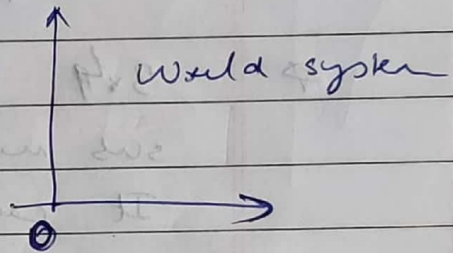 World system
O